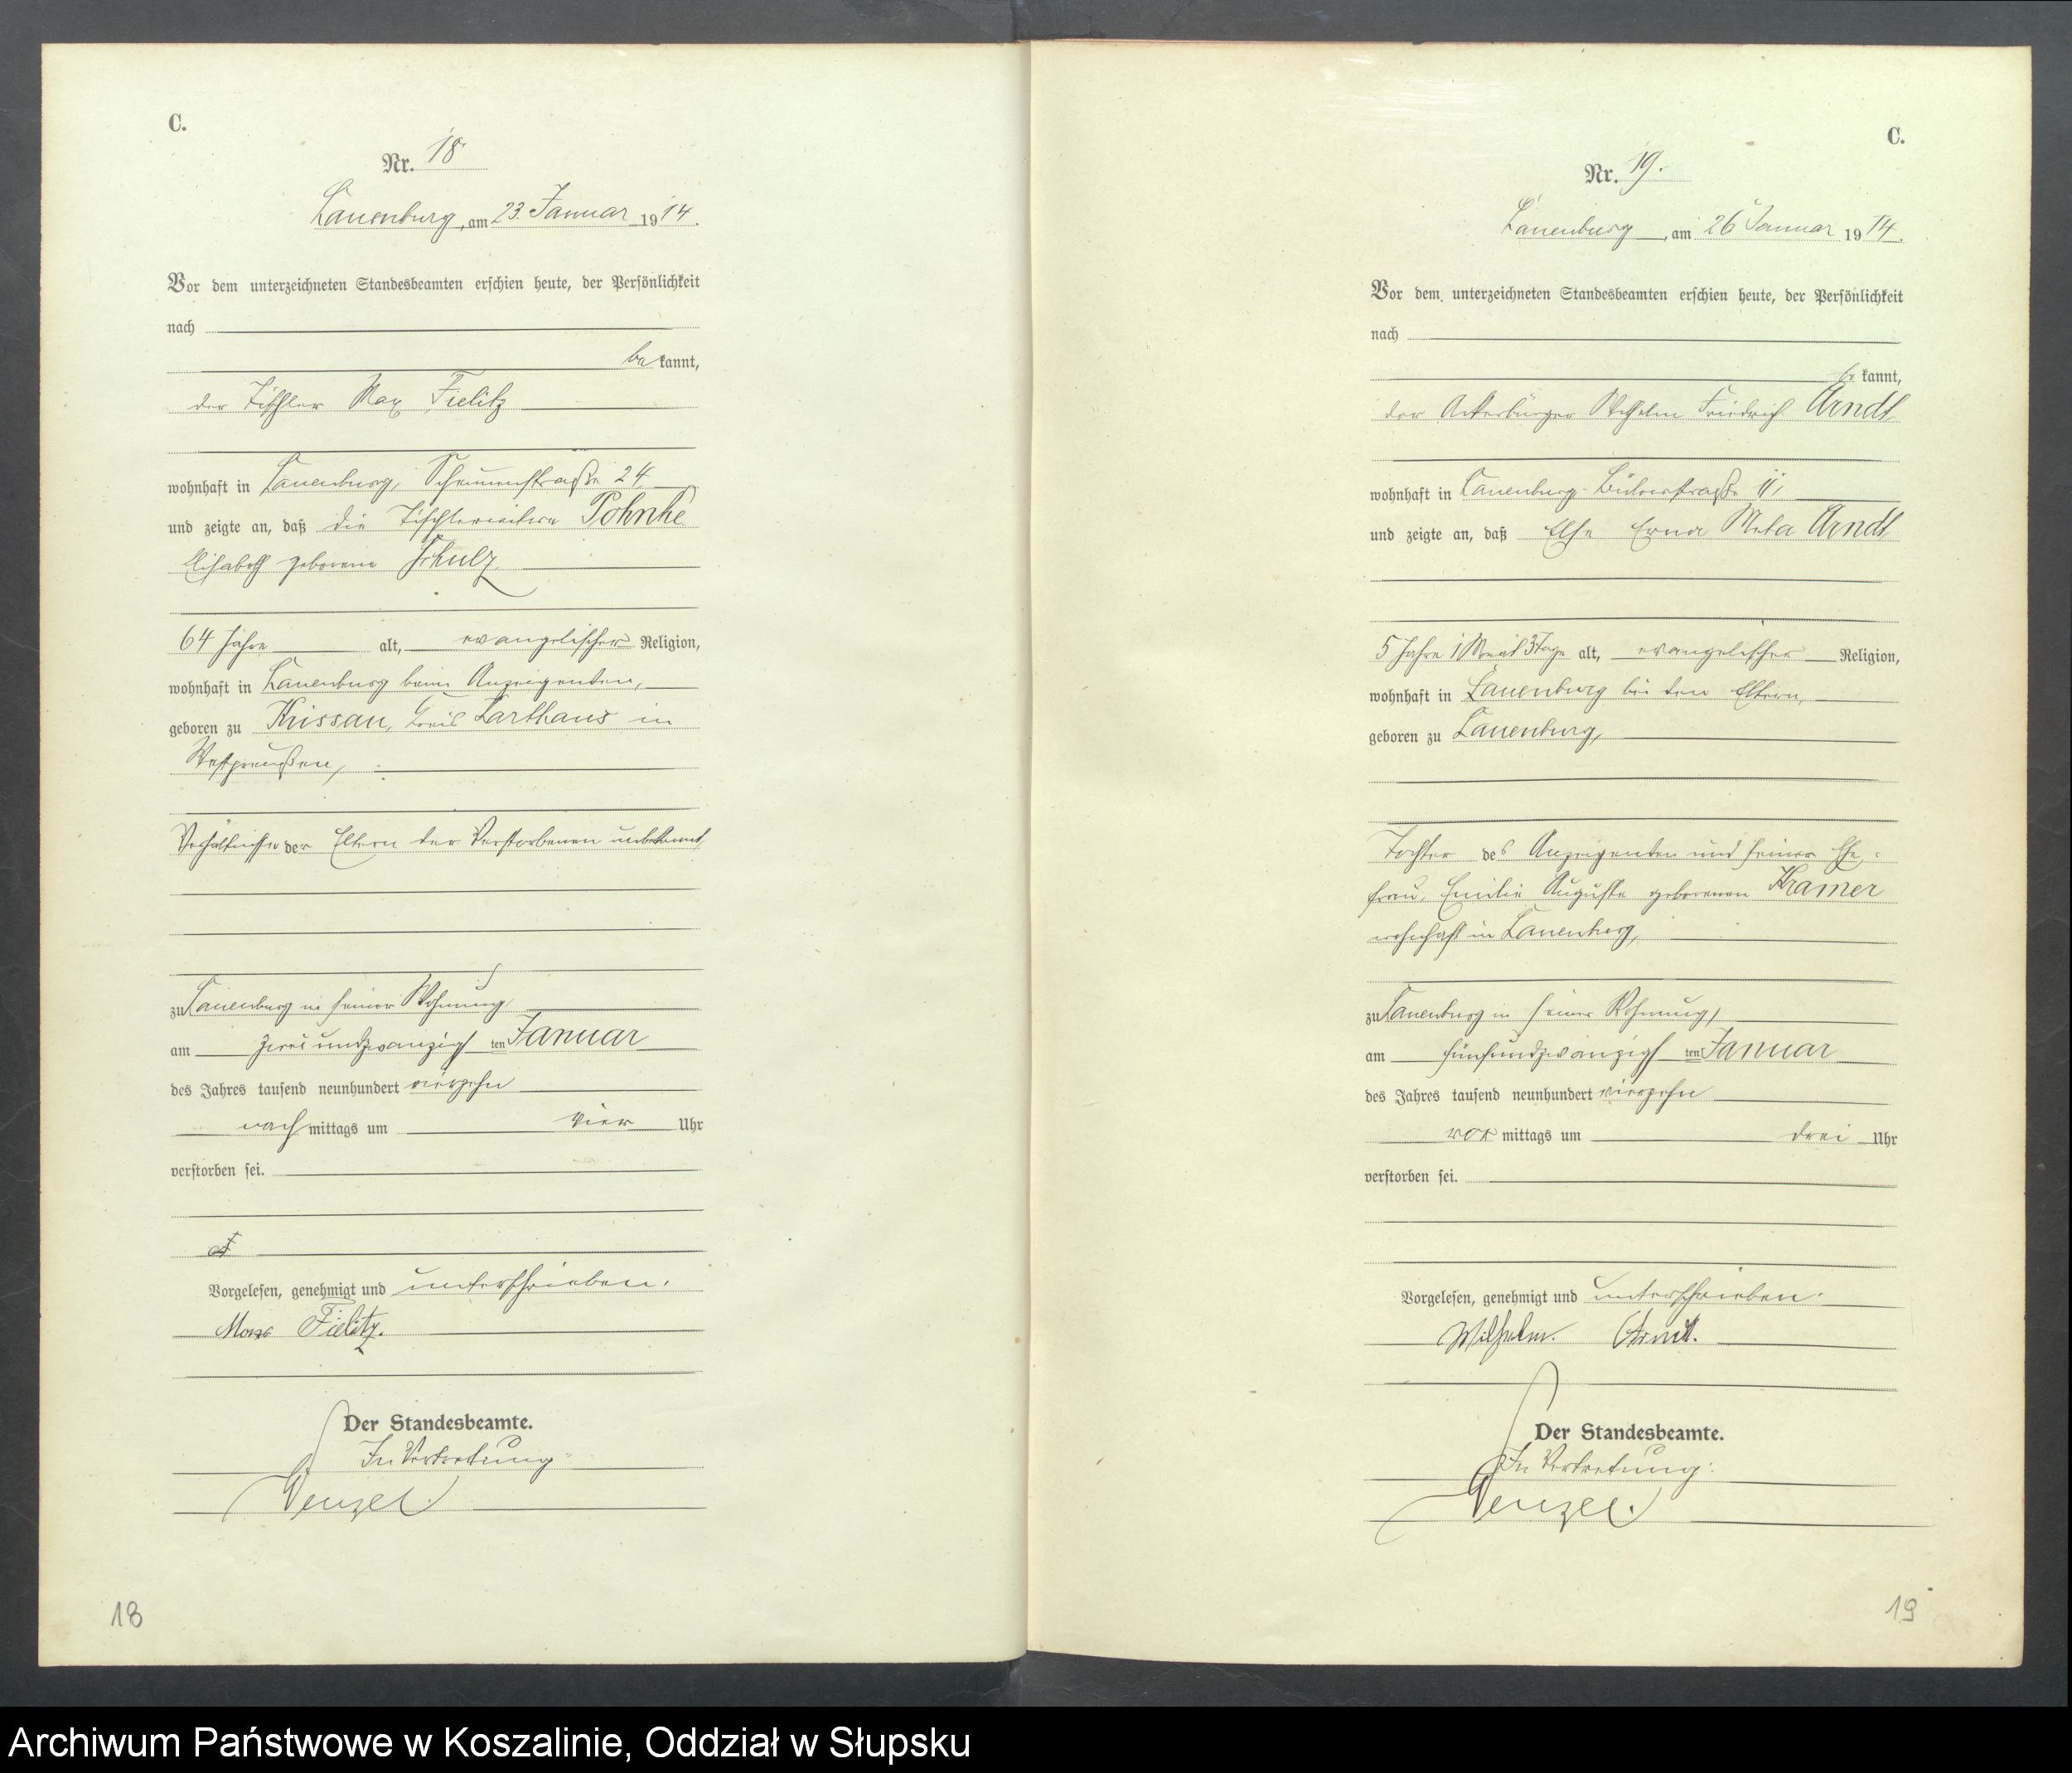 C.
Nr. 18
Lauenburg, am 23. Januar 1914.
Vor dem unterzeichneten Standesbeamten erschien heute, der Persönlichkeit
nach
bekannt,
der Tischler Max Fielitz
wohnhaft in Lauenburg, Scheunenstraße 24
und zeigte an, daß die Tischlerwitwe Pohnke
Elisabeth geborene Schulz
64 Jahre alt, evangelischer Religion,
wohnhaft in Lauenburg beim Anzeigenden,
geboren zu Krissau, Kreis Karthaus in
Westpreußen,
Verhältnisse der Eltern der Verstorbenen unbekannt,
zu Lauenburg in seiner Wohnung
am zweiundzwanzigsten Januar
des Jahres tausend neunhundert vierzehn
nachmittags um vier Uhr
verstorben sei.
Vorgelesen, genehmigt und unterschrieben.
Max Fielitz.
Der Standesbeamte.
In Vertretung:
Wenzel.
18
C.
Nr. 19.
Lauenburg, am 26 Januar 1914.
Vor dem unterzeichneten Standesbeamten erschien heute, der Persönlichkeit
nach
bekannt,
der Ackerbürger Wilhelm Friedrich Arndt
wohnhaft in Lauenburg Bütowerstraße 11,
und zeigte an, daß Else Erna Meta Arndt
5 Jahre 1 Monat 3 Tage alt, evangelischer Religion,
wohnhaft in Lauenburg bei den Eltern,
geboren zu Lauenburg,
Tochter des Anzeigenden und seiner Ehe-
frau, Emilie Auguste geborenen Kramer
wohnhaft in Lauenburg,
zu Lauenburg in seiner Wohnung,
am fünfundzwanzigsten Januar
des Jahres tausend neunhundert vierzehn
vormittags um drei Uhr
verstorben sei.
Vorgelesen, genehmigt und unterschrieben.
Wilhelm. Arndt.
Der Standesbeamte.
In Vertretung:
Wenzel.
19
Archiwum Państwowe w Koszalinie, Oddział w Słupsku